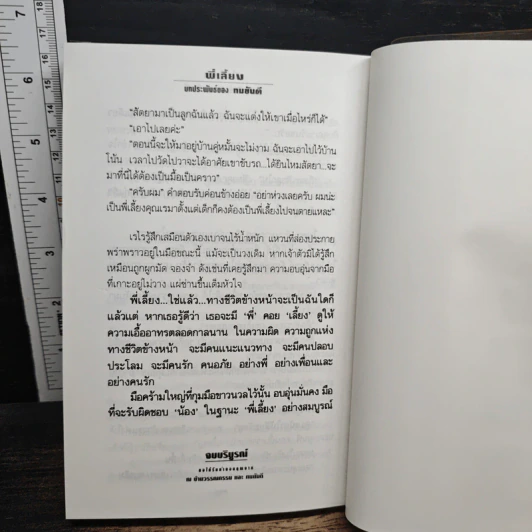 พี่เลี้ยง
บทประพันธ์ของ ทมยันตี
"ลัดยามาเป็นลูกฉันแล้ว ฉันจะแต่งให้เขาเมื่อไหร่ก็ได้"
"เอาไปเลยค่ะ"
"ตอนนี้จะให้มาอยู่บ้านคู่หมั้นจะไม่งาม ฉันจะเอาไปไว้บ้าน
โน้น เวลาไปวัดไปวาจะได้อาศัยเขาขับรถ...ได้ยินไหมลัดยา...จะ
มาที่นี่ได้ต้องเป็นมื้อเป็นคราว"
"ครับผม" คำตอบรับค่อนข้างอ่อย "อย่าห่วงเลยครับ ผมน่ะ
เป็นพี่เลี้ยงคุณเรมาตั้งแต่เด็กก็คงต้องเป็นพี่เลี้ยงไปจนตายแหละ"
เรไรรู้สึกเสมือนตัวเองเบาจนไร้น้ำหนัก แหวนที่ส่องประกาย
พร่าพราวอยู่ในมือขณะนี้ แม้จะเป็นวงเดิม หากเจ้าตัวมิได้รู้สึก
เหมือนถูกผูกมัด จองจำ ดังเช่นที่เคยรู้สึกมา ความอบอุ่นจากมือ
ที่เกาะอยู่ไม่วาง แผ่ซ่านขึ้นเต็มหัวใจ
พี่เลี้ยง...ใช่แล้ว...ทางชีวิตข้างหน้าจะเป็นฉันใดก็
แล้วแต่ หากเธอรู้ดีว่า เธอจะมี 'พี่' คอย 'เลี้ยง' ดูให้
ความเอื้ออาทรตลอดกาลนาน ในความผิด ความถูกแห่ง
ทางชีวิตข้างหน้า จะมีคนแนะแนวทาง จะมีคนปลอบ
ประโลม จะมีคนรัก คนอภัย อย่างพี่ อย่างเพื่อนและ
อย่างคนรัก
มือคร้ามใหญ่ที่กุมมือขาวนวลไว้นั้น อบอุ่นมั่นคง มือ
ที่จะรับผิดชอบ 'น้อง' ในฐานะ 'พี่เลี้ยง' อย่างสมบูรณ์
จบบริบูรณ์
ณ บ้านวรรณกรรม และ ทมยันตี
1
2
3
4
5
6
7